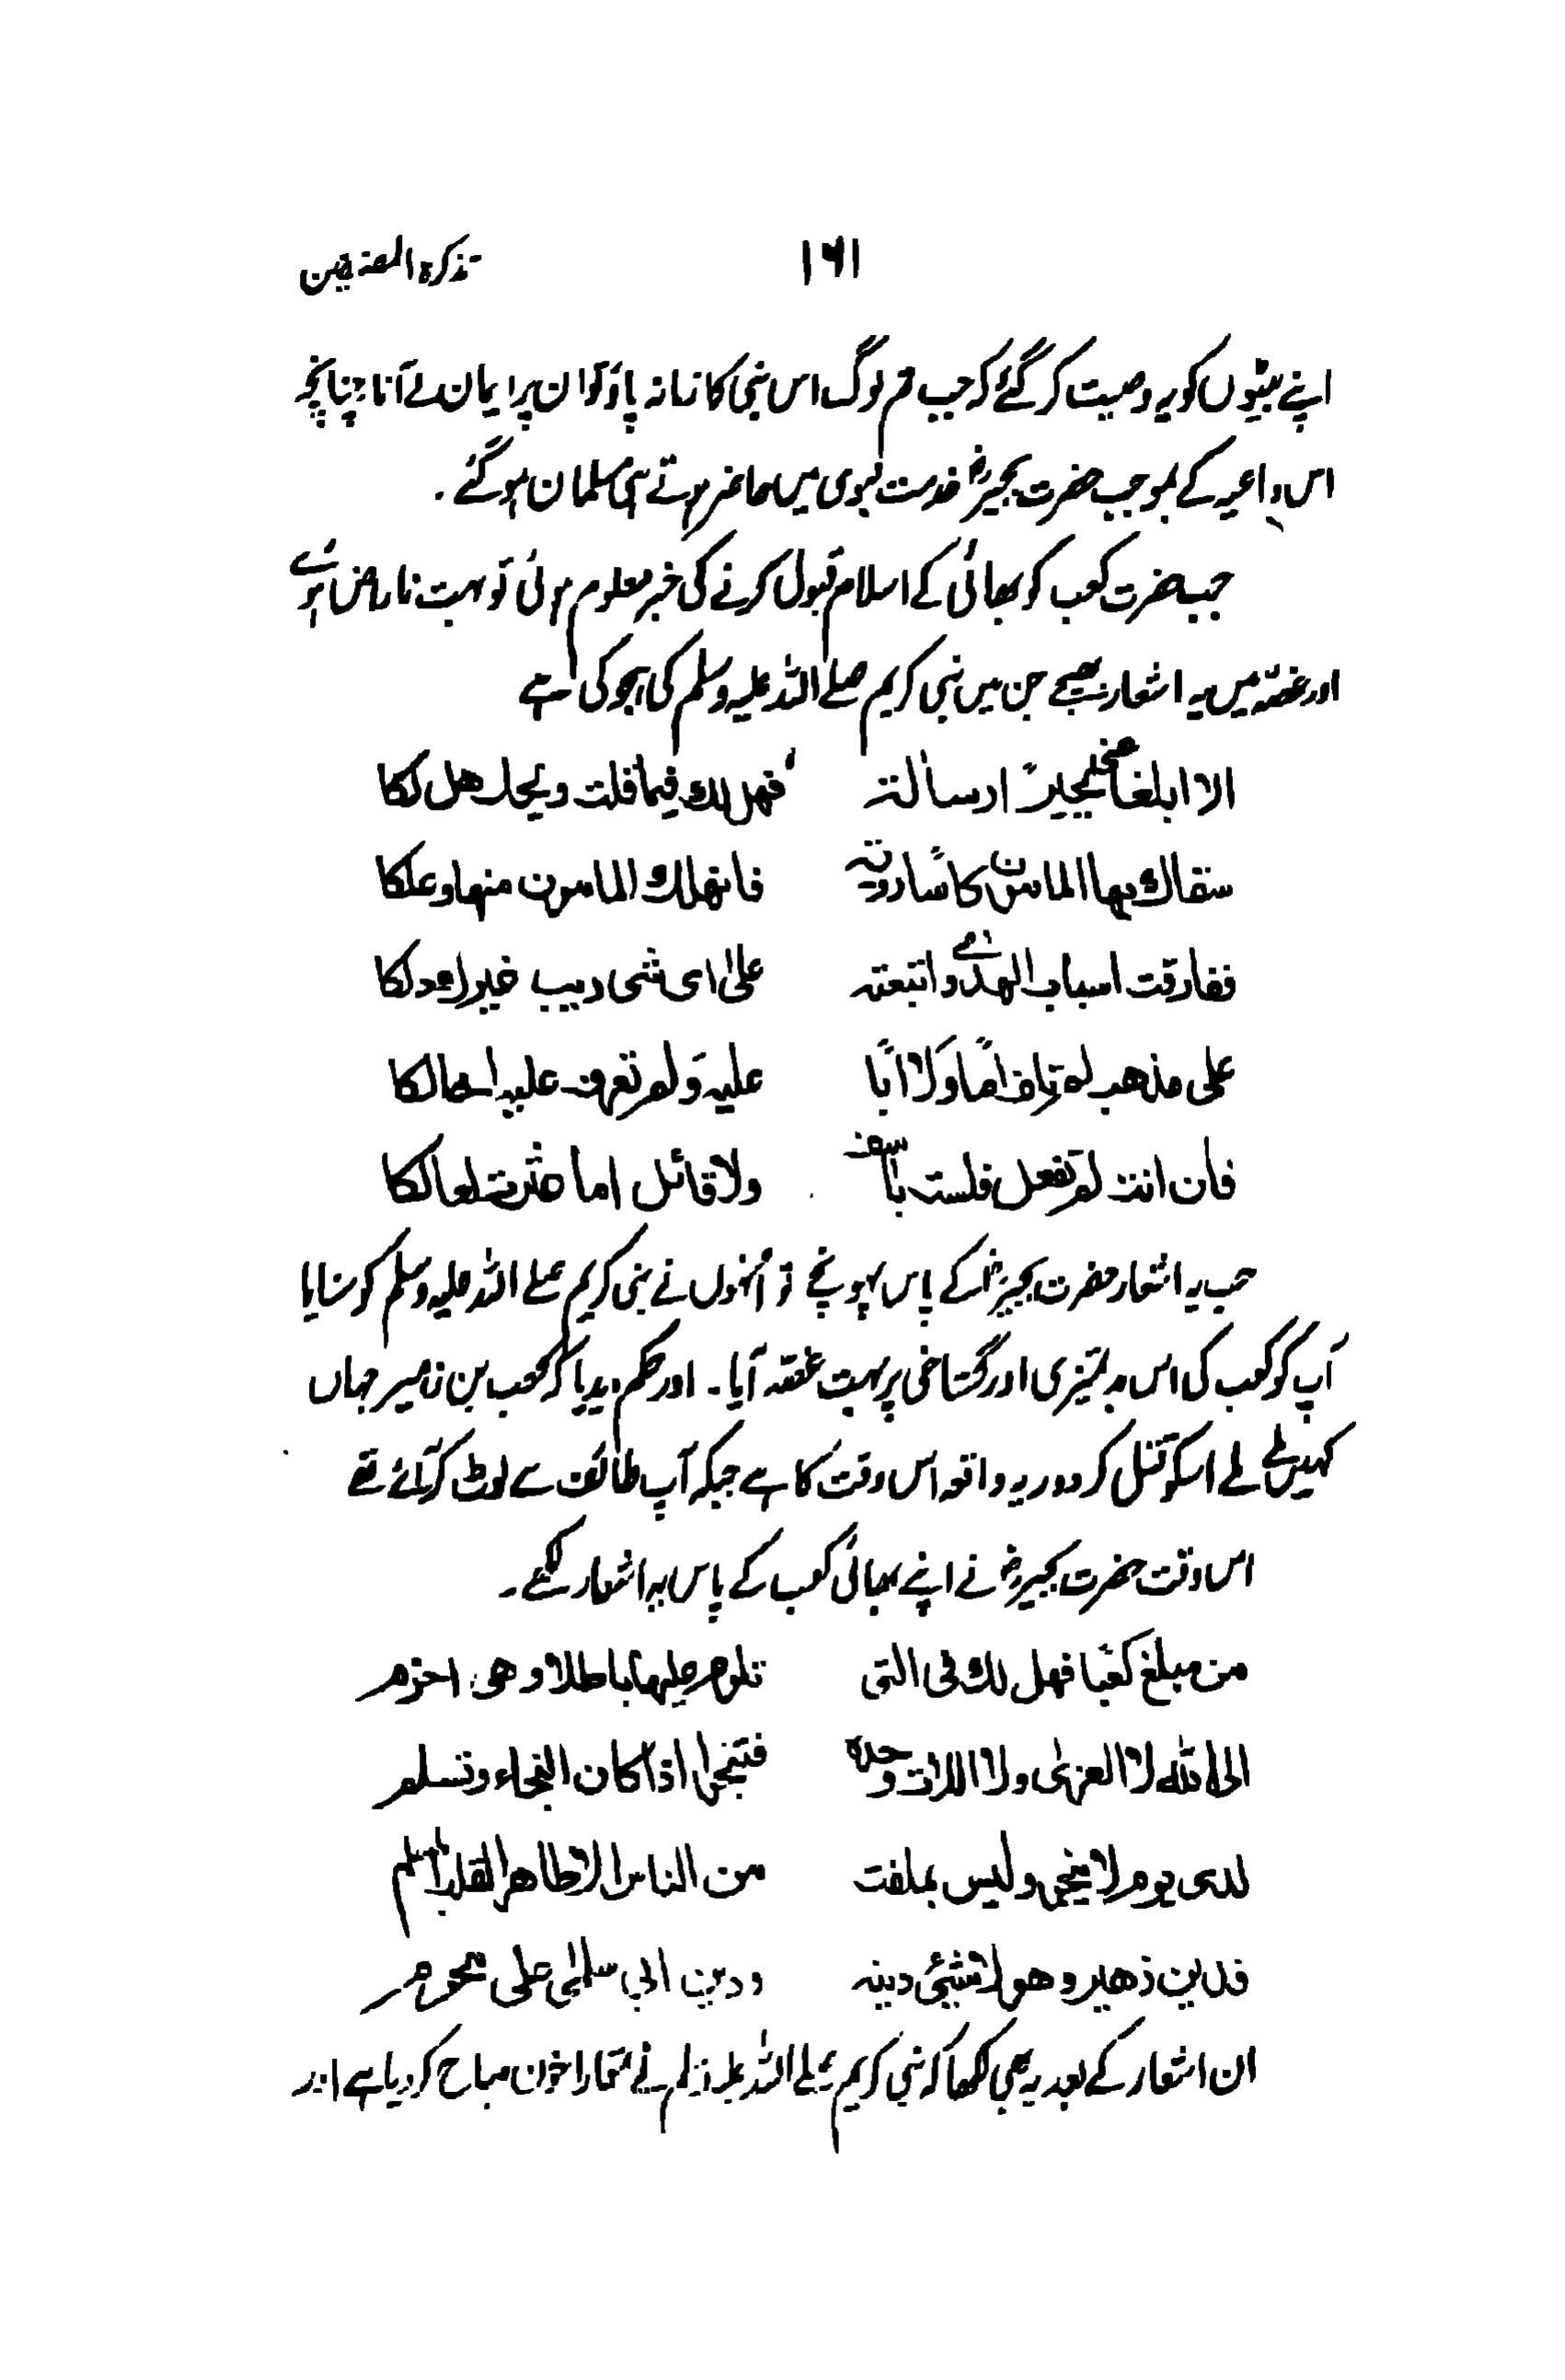 تذکرۃ المصنفین ۱۶۱
اپنے بیٹیوں کو یہ وصیت کر گئے کہ جب تم لوگ اس نبی کا زمانہ پاؤ تو ان پر ایمان لے آنا، چنانچہ
اس داعیہ کے بموجب حضرت بجیرؓ خدمت نبوی میں حاضر ہوتے ہی مسلمان ہو گئے ۔
جب حضرت کعب کو بھائی کے اسلام قبول کرنے کی خبر معلوم ہوئی تو بہت ناراض ہوئے
اور غصّہ میں یہ اشعار بھیجے جن میں نبی کریم صلے اللہ علیہ وسلم کی ہجو کی ہے
الا ابلغا عنی بجیرًا رسالۃ فهل لك فیما قلت ویحك هل لكا
سقاك بها المامون كاسًا رویۃ فانهلك المامون منها وعلكا
ففارقت اسباب الهدٰے واتبعته علیٰ ای شی ریب غیرك دلكا
علی مذهب لم تلف امًا وَلا ابًا علیه وَلم تعرف علیه اخالكا
فان انت لم تفعل فلست بآسف ولا قائل اما عثرت لعالكا
جب یہ اشعار حضرت بجیرؓ کے پاس پہونچے تو اُنہوں نے نبی کریم صلے اللہ علیہ وسلم کو سنایا
آپ کو کعب کی اس بدتمیزی اور گستاخی پر بہت غصّہ آیا ۔ اور حکم دیدیا کہ کعب بن زہیر جہاں
کہیں ملے اسکو قتل کر دو اور یہ واقعہ اس وقت کا ہے جبکہ آپ طائف سے لوٹ کر آئے تھے
اس وقت حضرت بجیرؓ نے اپنے بھائی کعب کے پاس یہ اشعار لکھے ۔
من مبلغ كعبًا فهل لك فی التی تلوم علیها باطلا و هی احزم
الی الله لا العزیٰ ولا اللات وحدہ فتنجوا اذا كان النجاء وتسلم
لدی یوم لا ینجی ولیس بمفلت من الناس الا طاهر القلب مسلم
فدین زهیر وهو لا شیئ دینه ودین ابی سلمیٰ علی محرم
ان اشعار کے بعد یہ بھی لکھا کہ نبی کریم صلے اللہ علیہ وسلم نے تمہارا خون مباح کر دیا ہے اور